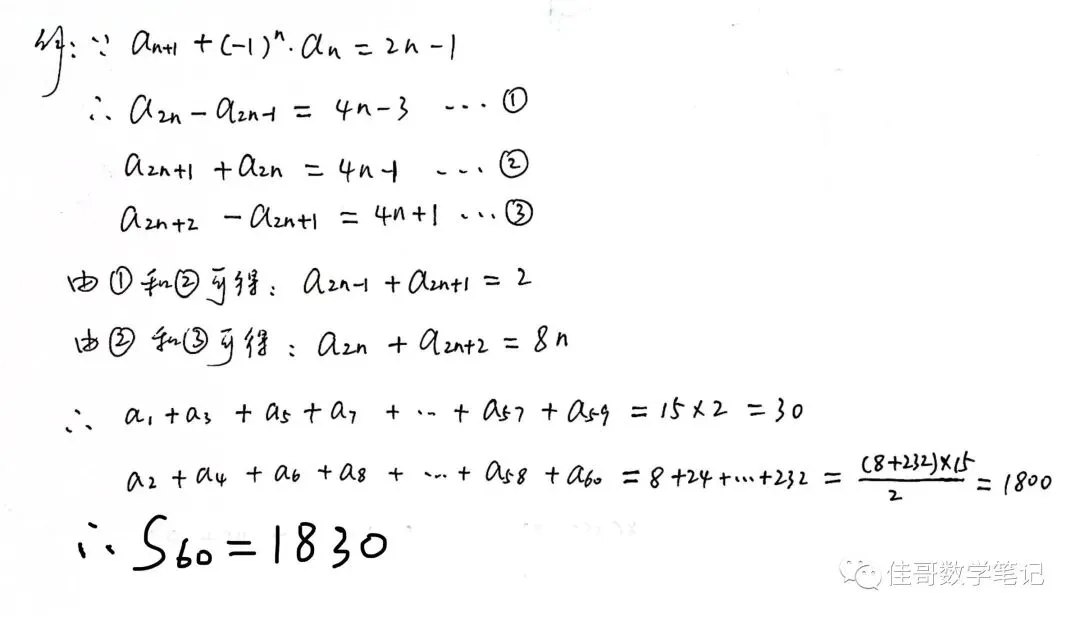 解：∵ aₙ₊₁ + (-1)ⁿ·aₙ = 2n-1
∴ a₂ₙ - a₂ₙ₋₁ = 4n-3 ···· ①
a₂ₙ₊₁ + a₂ₙ = 4n-1 ···· ②
a₂ₙ₊₂ - a₂ₙ₊₁ = 4n+1 ···③
由①和②可得：a₂ₙ₋₁ + a₂ₙ₊₁ = 2
由②和③可得：a₂ₙ + a₂ₙ₊₂ = 8n
∴ a₁ + a₃ + a₅ + a₇ + ··· + a₅₇ + a₅₉ = 15×2 = 30
a₂ + a₄ + a₆ + a₈ + ··· + a₅₈ + a₆₀ = 8+24+···+232 = (8+232)×15/2 = 1800
∴ S₆₀ = 1830
佳哥数学笔记